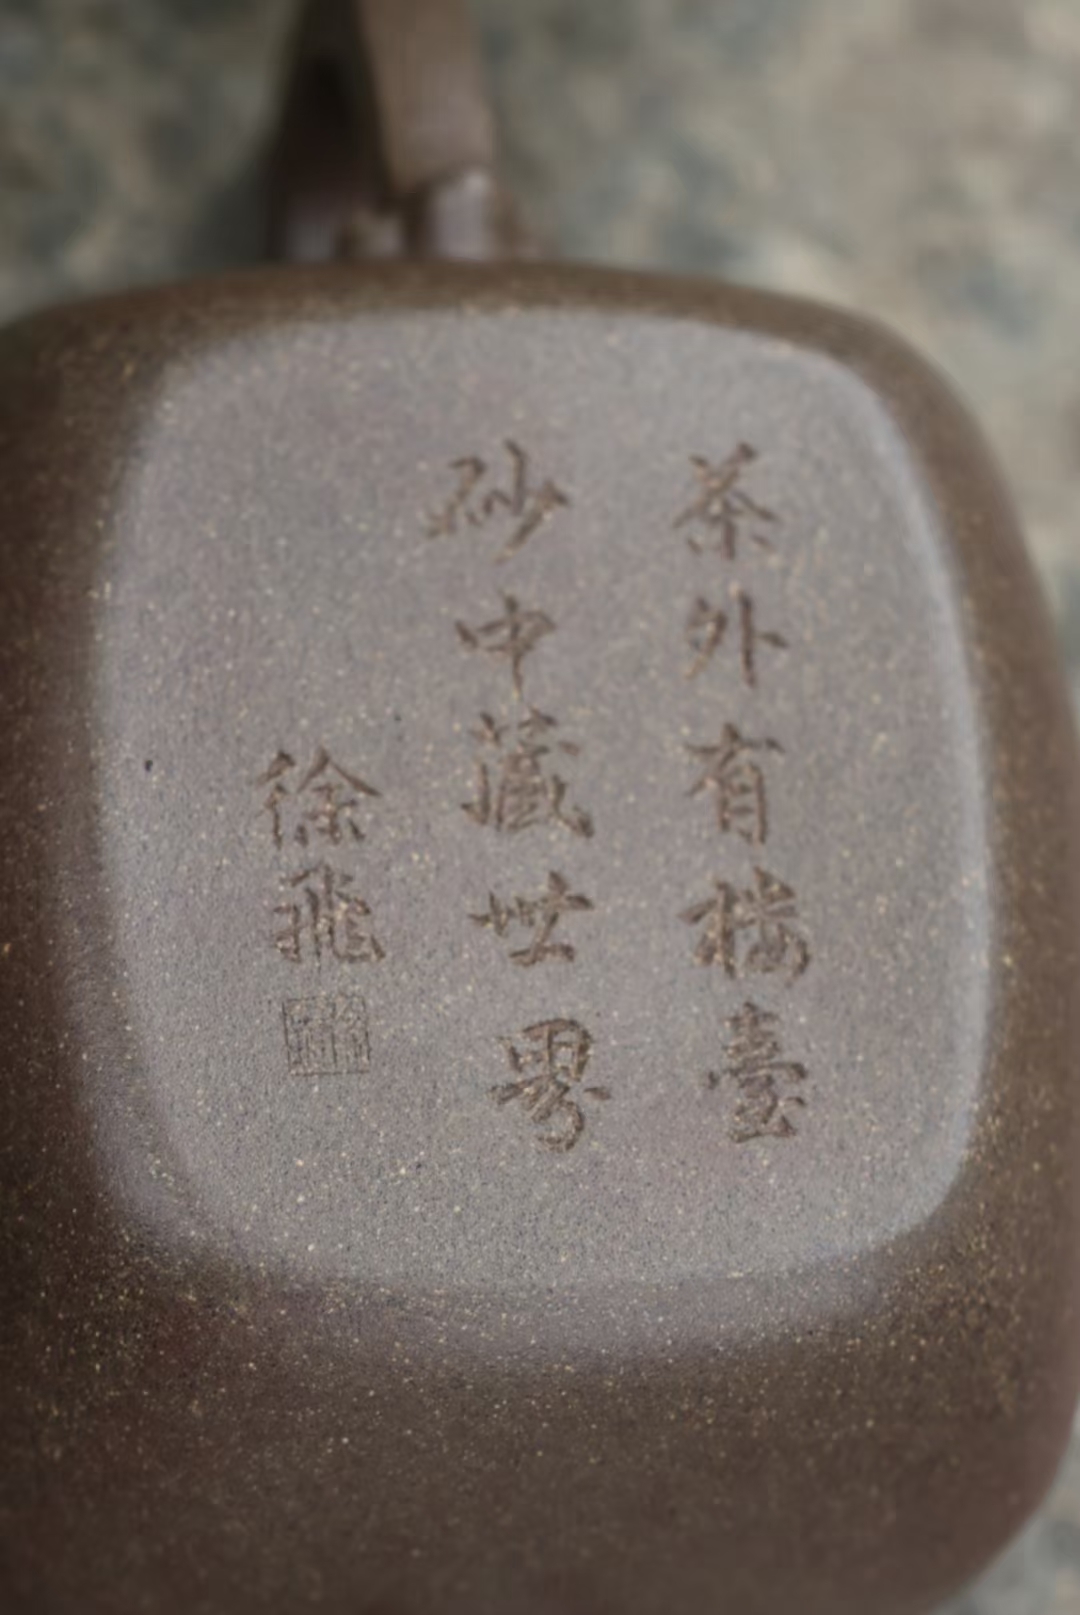 茶外有楼臺
砂中藏世界
徐飛